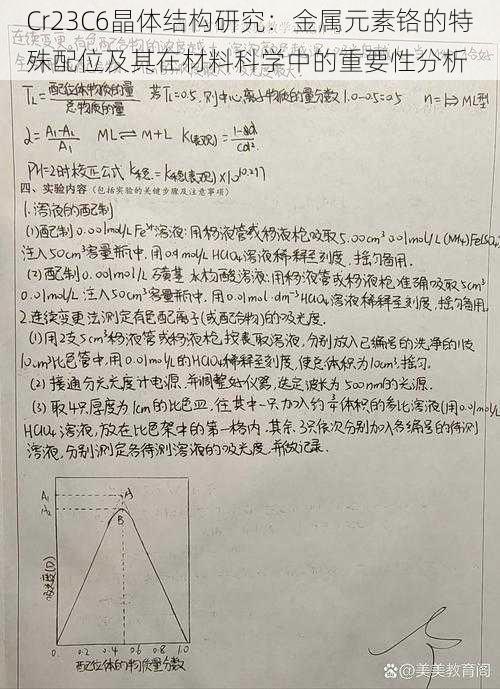 Cr23C6晶体结构研究：金属元素铬的特
殊配位及其在材料科学中的重要性分析
T_L = 配位体物质的量 / 总物质的量 若T_L=0.5, 则中心离子物质的量分数1.0-0.5=0.5 n=1⇒ML型
α = A₁-A₂ / A₁ ML⇌M+L K(表观) = 1-α / cα²
PH=2时校正公式 K稳 = K稳(表观)×10^10.297
四、实验内容（包括实验的关键步骤及注意事项）
1.溶液的配制
(1)配制0.001mol/L Fe³⁺溶液:用移液管或移液枪吸取5.00cm³ 0.01mol/L (NH₄)Fe(SO₄)₂
注入50cm³容量瓶中,用0.01mol/L HClO₄溶液稀释至刻度,摇匀备用.
(2)配制0.001mol/L磺基水杨酸溶液:用移液管或移液枪准确吸取5cm³
0.01mol/L注入50cm³容量瓶中,用0.01mol·dm⁻³HClO₄溶液稀释至刻度,摇匀备用.
2.连续变更法测定有色配离子(或配合物)的吸光度.
(1)用2支5cm³移液管或移液枪,按表取溶液,分别放入已编号的洗净的11支
10cm³比色管中,用0.01mol/L的HClO₄稀释至刻度,使总体积为10cm³,摇匀.
(2)接通分光光度计电源,并调整好仪器,选定波长为500nm的光源.
(3)取4只厚度为1cm的比色皿,往其中一只加入约3/4体积的参比溶液(用0.01mol/L
HClO₄溶液,放在比色架中的第一格内,其余3只依次分别加入各编号的待测
溶液,分别测定各待测溶液的吸光度,并做记录.
A₁
A
A₂
B
吸光度(D)
0 0.2 0.4 0.6 0.8 1.0
配位体的物质量分数
百家号/美美教育阁